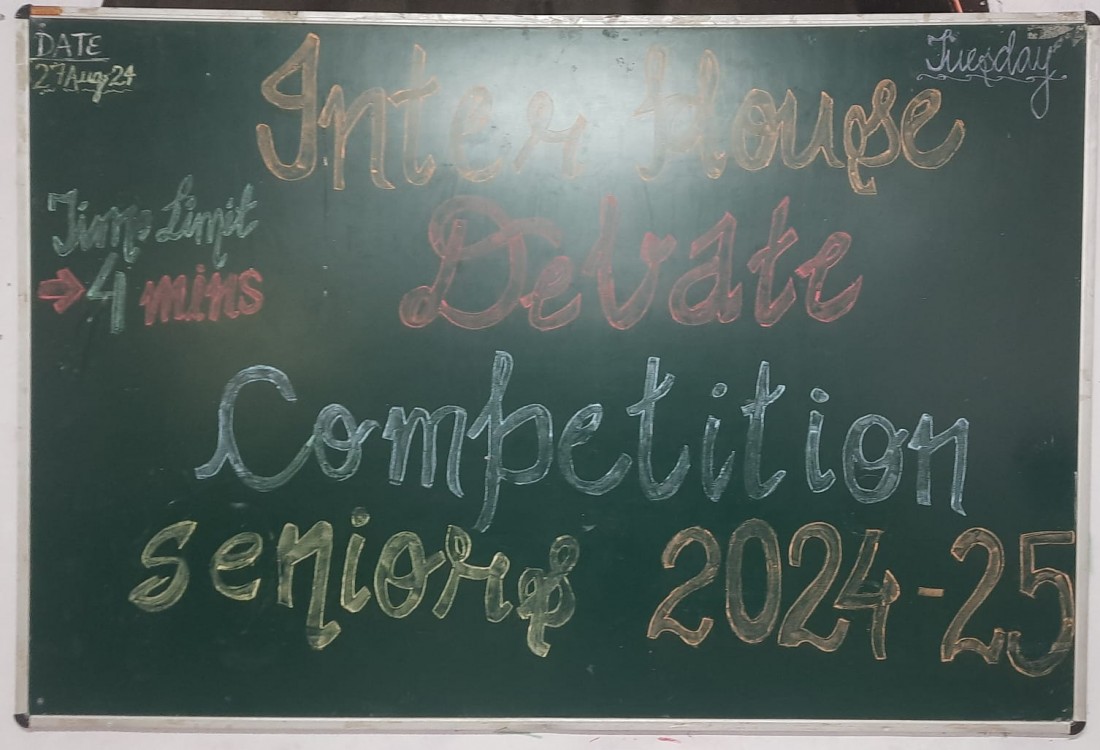 DATE
27 Aug 24
Tuesday
Inter House
Time Limit
Debate
→ 4 mins
Competition
seniors 2024-25